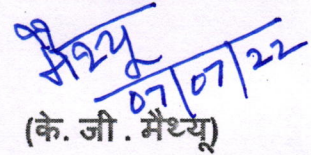 मैथ्यू
07/07/22
(के. जी . मैथ्यू)